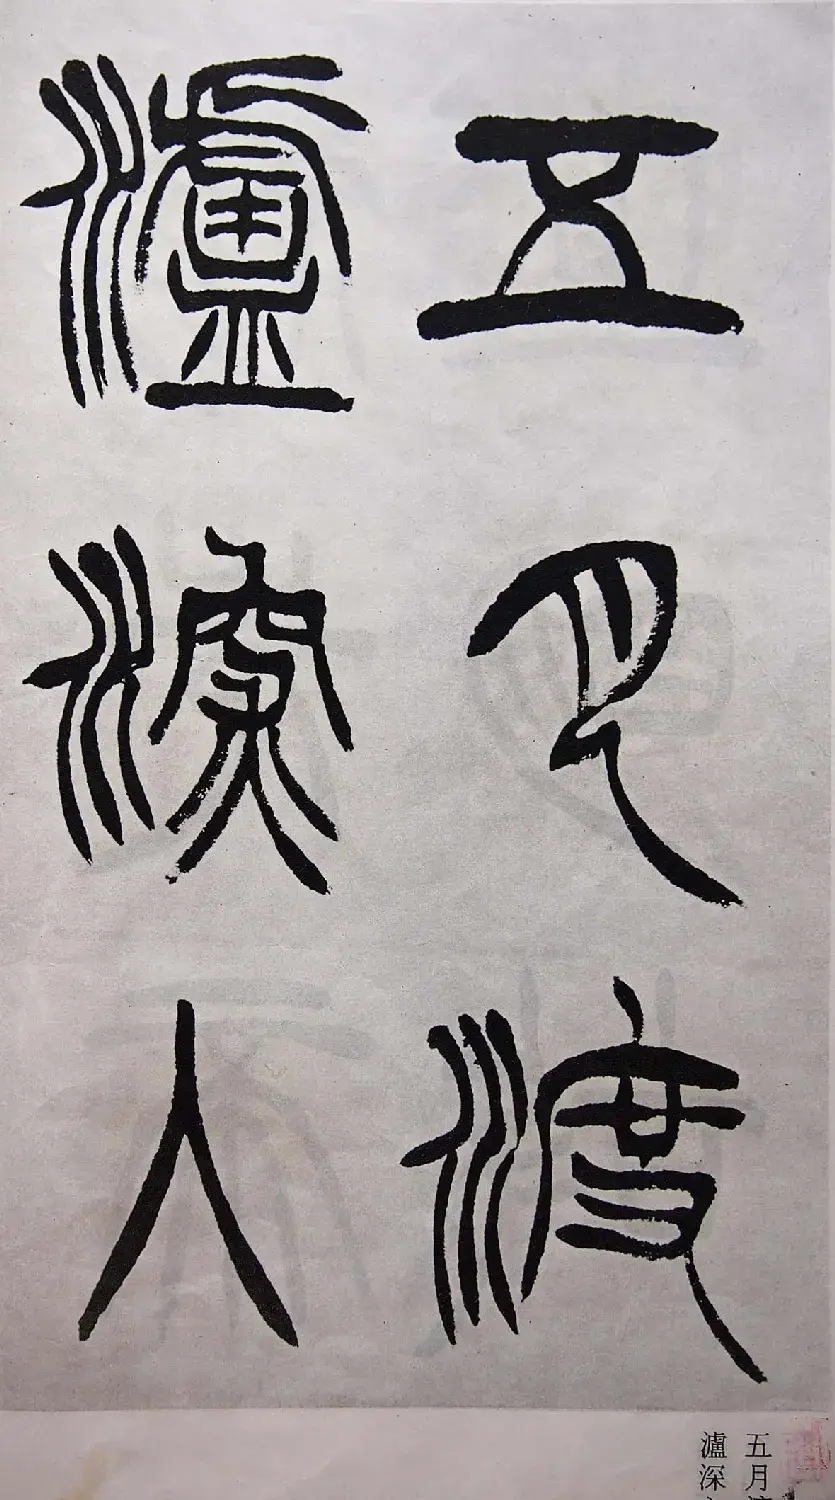 五月渡
瀘深入
五月
瀘深